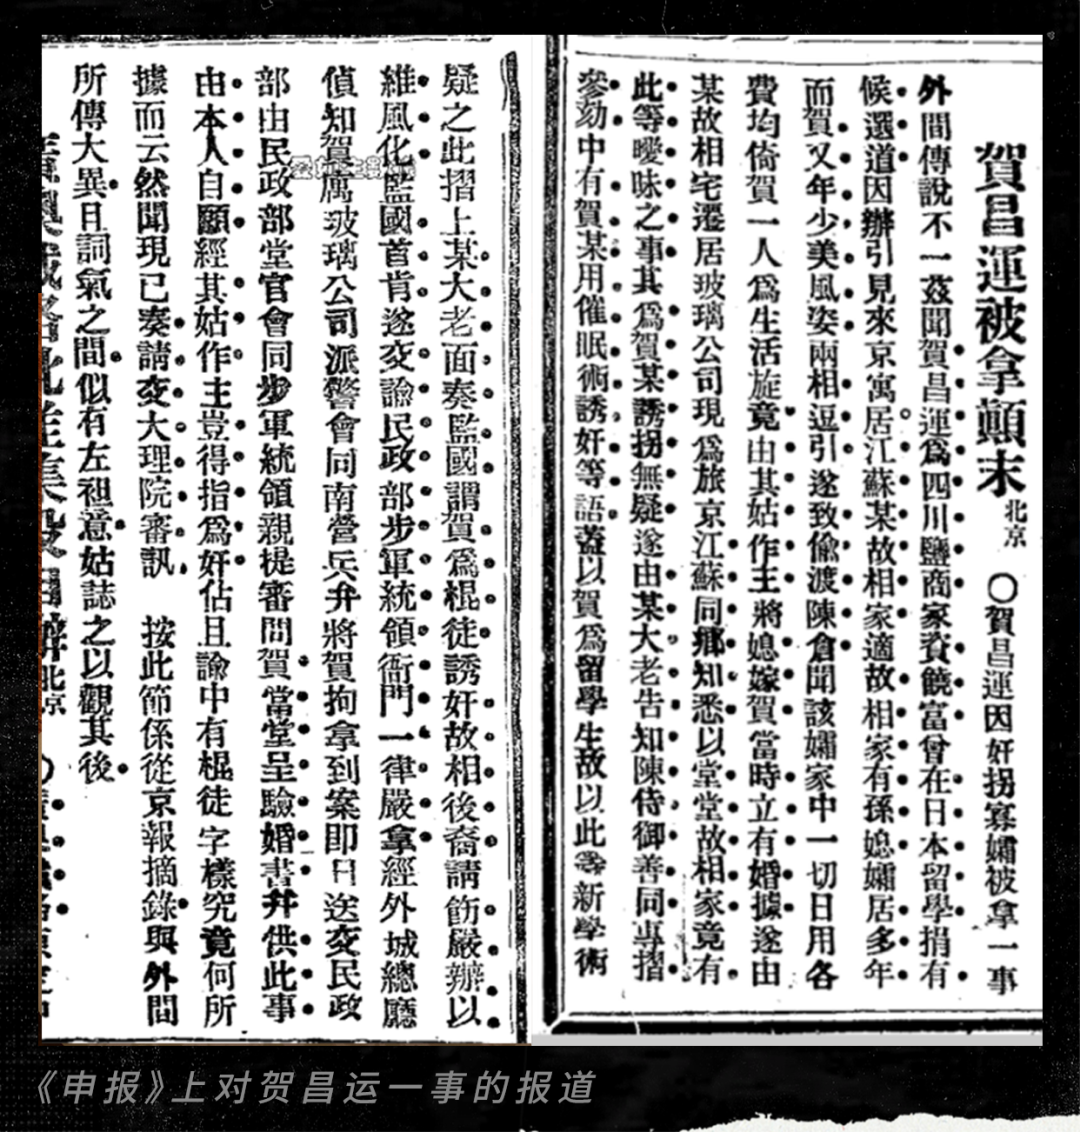 賀昌運被拿顛末 北京
○賀昌運因奸拐寡孀被拿一事
外間傳說不一茲聞賀昌運爲四川鹽商家資饒富曾在日本留學捐有
候選道因辦引見來京寓居江蘇某故相家適故相家有孫媳孀居多年
而賀又年少美風姿兩相逗引遂致偷渡陳倉聞該孀家中一切日用各
費均倚賀一人爲生活旋竟由其姑作主將媳嫁賀當時立有婚據遂由
某故相宅遷居玻璃公司現爲旅京江蘇同鄉知悉以堂堂故相家竟有
此等曖昧之事其爲賀某誘拐無疑遂由某大老告知陳侍御善同專摺
參劾中有賀某用催眠術誘奸等語蓋以賀爲留學生故以此等新學術
疑之此摺上某大老面奏監國謂賀爲棍徒誘奸故相後裔請飭嚴辦以
維風化監國首肯遂交諭民政部步軍統領衙門一律嚴拿經外城總廳
偵知賀寓玻璃公司派警會同南營兵弁將賀拘拿到案即日送交民政
部由民政部堂官會同步軍統領親提審問賀當堂呈驗婚書并供此事
由本人自願經其姑作主豈得指爲奸佔且諭中有棍徒字樣究竟何所
據而云然聞現已奏請交大理院審訊 按此節係從京報摘錄與外間
所傳大異且詞氣之間似有左袒意姑誌之以觀其後
北京
《申报》上对贺昌运一事的报道